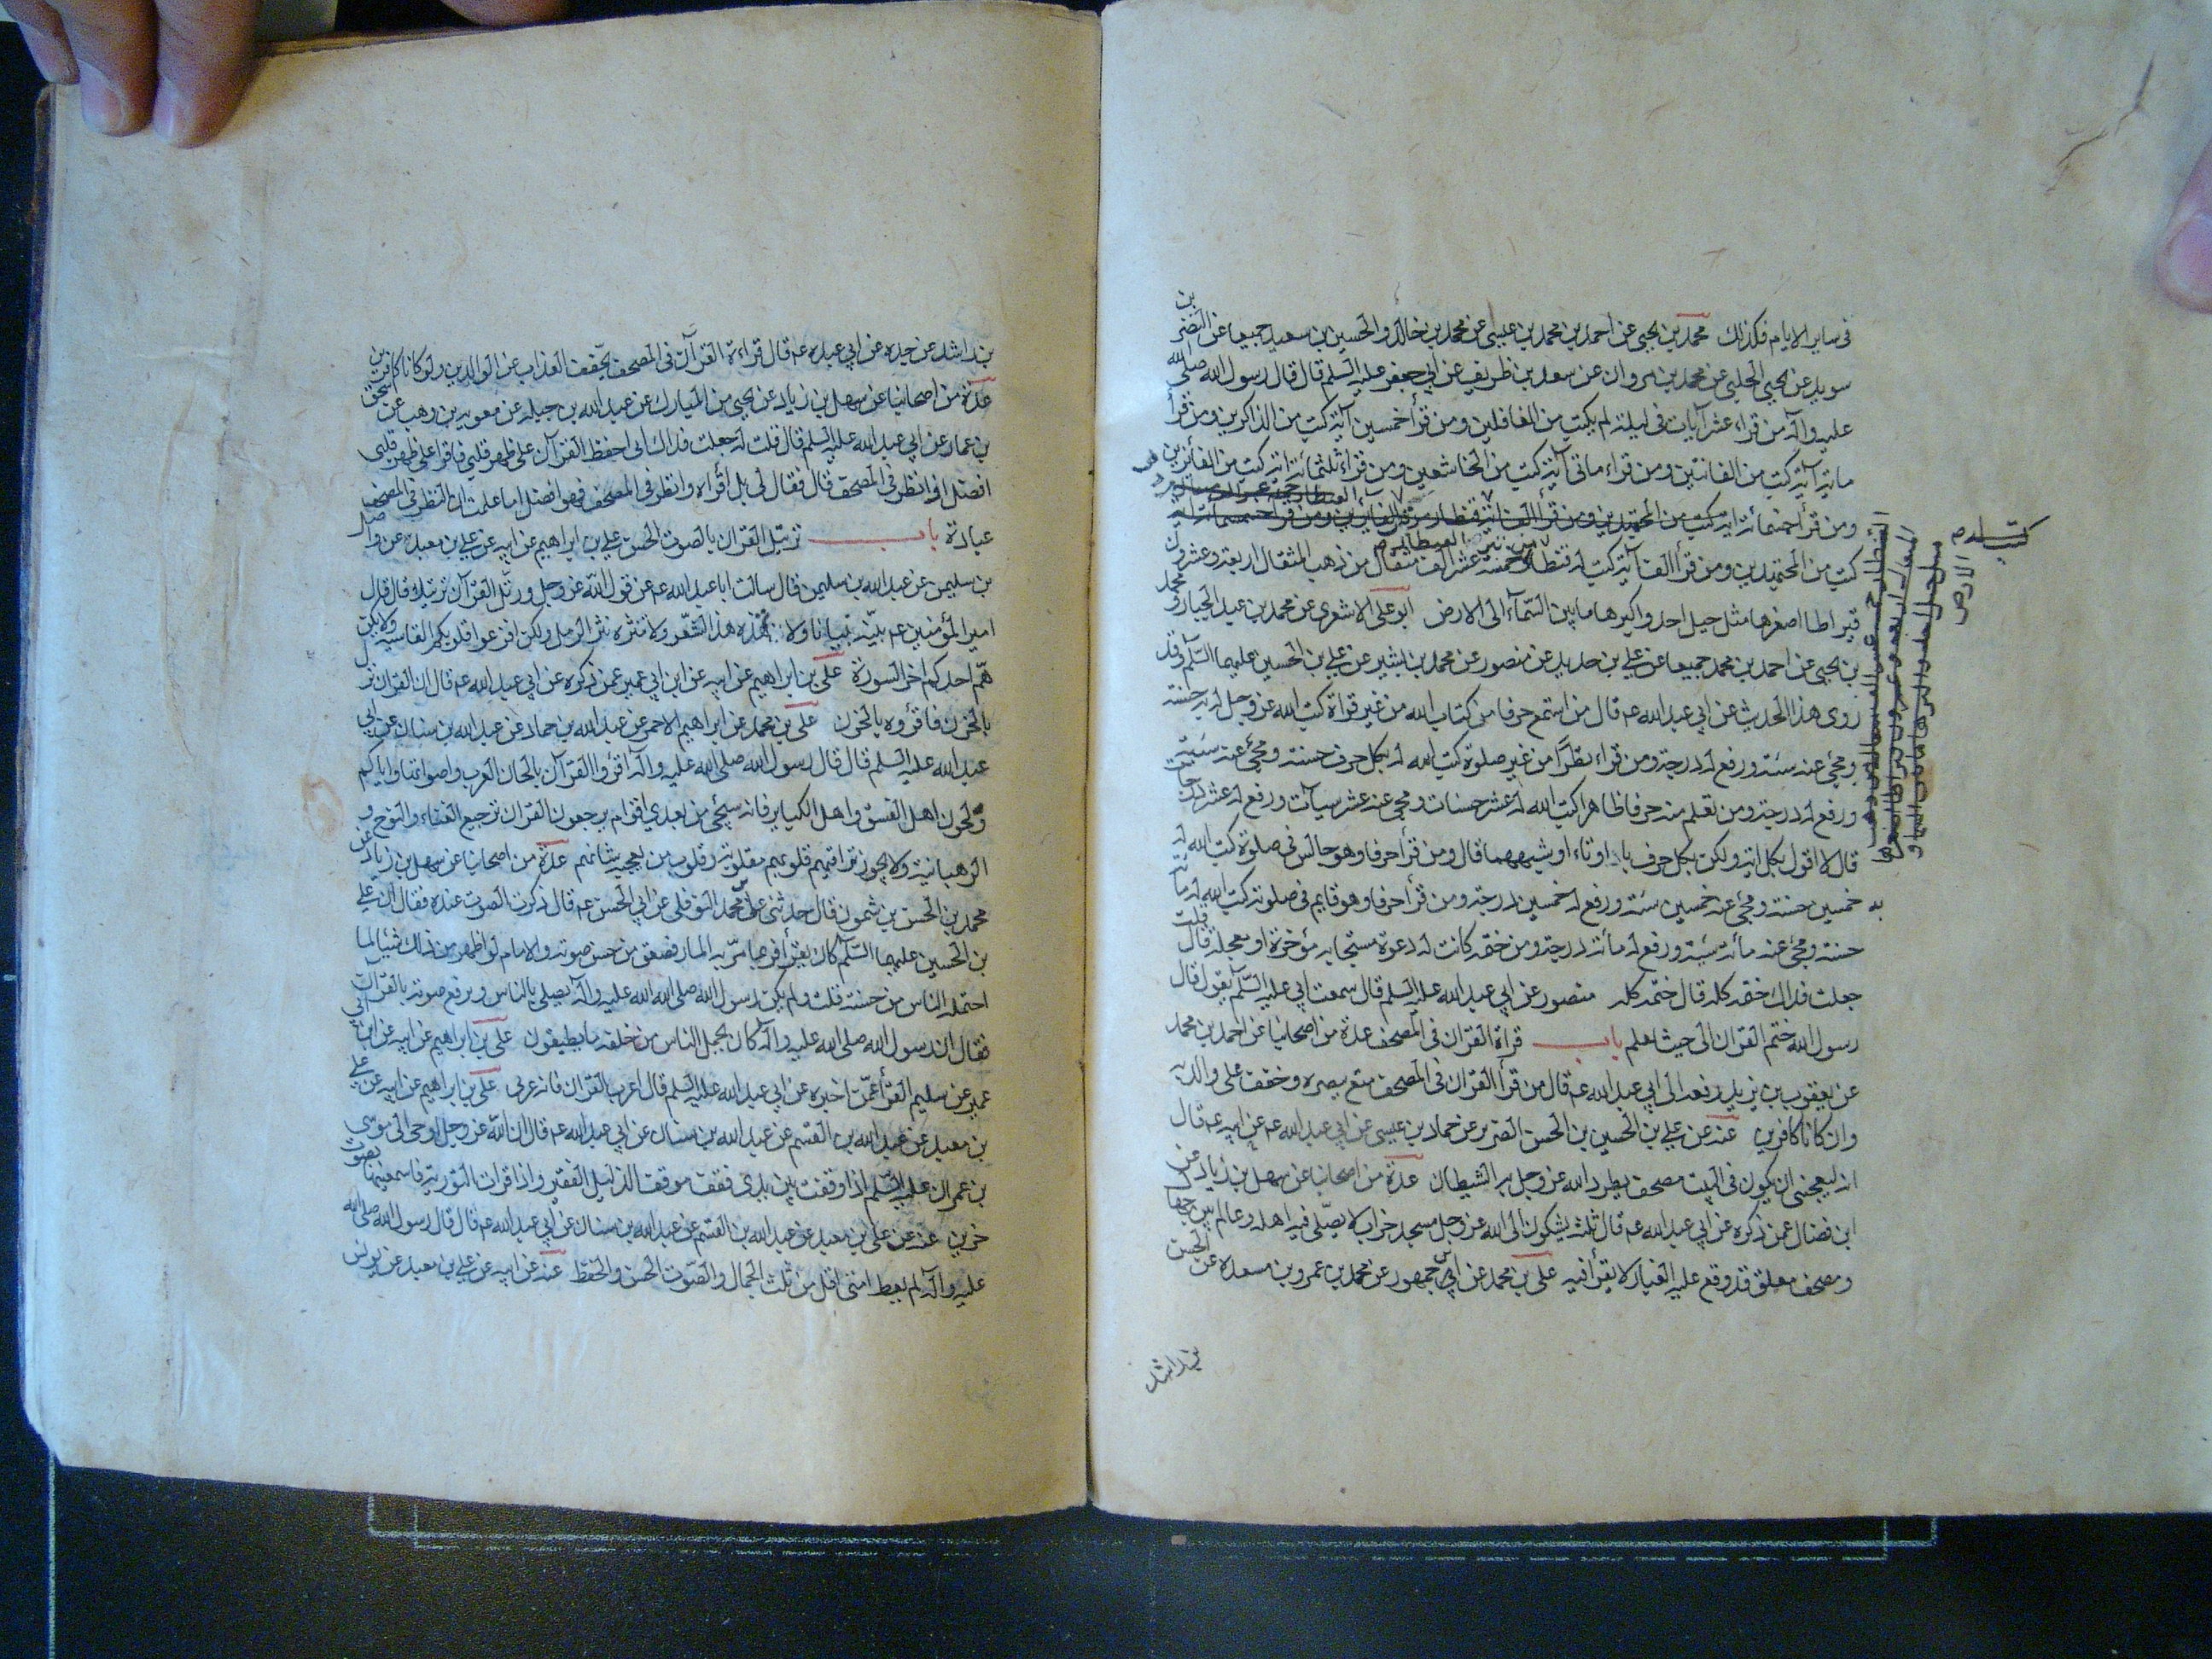 فى ساير الايام فكذلك محمد بن يحيى عن احمد بن محمد بن عيسى عن محمد بن خالد والحسين بن سعيد جميعا عن النضر بن
سويد عن يحيى الحلبى عن محمد بن مروان عن سعد بن ظريف عن ابى جعفر عليه السلم قال قال رسول الله صلى الله
عليه وآله من قراء عشر آيات فى ليلة لم يكتب من الغافلين ومن قرأ خمسين آية كتب من الذاكرين ومن قرأ
ماية آية كتب من القانتين ومن قراء ماتى آية كتب من الخاشعين ومن قراء ثلثمائة اية كتب من الفائزين
ومن قرأ خمسمائة اية كتب من المجتهدين ومن قرأ الف اية
كتب من المجتهدين ومن قرأ الف آية كتب له قنطار خمسة عشر الف مثقال من ذهب المثقال اربعة وعشرون
قيراطا اصغرها مثل جبل احد واكبرها ما بين السمآء الى الارض ابو على الاشعرى عن محمد بن عبد الجبار ومحمد
بن يحيى عن احمد بن محمد جميعا عن على بن حديد عن منصور عن محمد بن بشير عن على بن الحسين عليهما السلم وقد
روى هذا الحديث عن ابى عبد الله عه قال من استمع حرفا من كتاب الله من غير قراة كتب الله عز وجل له به حسنة
ومحى عنه سئة ورفع له درجة ومن قراء نظرًا من غير صلوة كتب الله له بكل حرف حسنة ومحى عنه سيئة
ورفع له درجة ومن تعلم منه حرفا ظاهرا كتب الله له عشر حسنات ومحى عنه عشر سيآت ورفع له عشر درجات
قال لا اقول بكل اية ولكن بكل حرف باء او تاء او شبههما قال ومن قرأ حرفا وهو جالس فى صلوة كتب الله له
به خمسين حسنة ومحى عنه خمسين سئة ورفع له خمسين درجة ومن قرأ حرفا وهو قايم فى صلوته كتب الله له مائة
حسنة ومحى عنه مائة سئية ورفع له مائة درجة ومن ختمه كانت له دعوة مستجابه مؤخرة او معجلة قال قلت
جعلت فداك ختمه كله قال ختمه كله منصور عن ابى عبد الله عليه السلم قال سمعت ابى عليه السلم يقول قال
رسول الله ختم القران الى حيث تعلم باب قراة القران فى المصحف عدة من اصحابنا عن احمد بن محمد
عن يعقوب بن يزيد رفعه الى ابى عبد الله عه قال من قرأ القران فى المصحف متع ببصره وخفف على والديه
وان كانا كافرين عنه عن على بن الحسين بن الحسن الضرير عن حماد بن عيسى عن ابى عبد الله عه عن ابيه عه قال
انه ليعجبنى ان يكون فى البيت مصحف يطرد الله عز وجل به الشيطان عدة من اصحابنا عن سهل بن زياد عن
ابن فضال عمن ذكره عن ابى عبد الله عه قال ثلث يشكون الى الله عز وجل مسجد خراب لا يصلى فيه اهله وعالم بين جهال
ومصحف معلق قد وقع عليه الغبار لا يقرأ فيه على بن محمد عن ابن جمهور عن محمد بن عمرو بن مسعدة عن الحسن
بن راشد
كتب له ص
الارض
بن راشد عن جده عن ابى عبد الله عه قال قراءة القرآن فى المصحف يخفف العذاب عن الوالدين ولو كانا كافرين
عدة من اصحابنا عن سهل بن زياد عن يحيى بن المبارك عن عبد الله بن جبلة عن معوية بن وهب عن اسحق
بن عمار عن ابى عبد الله عليه السلم قال قلت له جعلت فداك انى احفظ القرآن على ظهر قلبى فاقرأ على ظهر قلبى
افضل او انظر فى المصحف قال فقال لى بل اقراه وانظر فى المصحف فهو افضل اما علمت ان النظر فى المصحف
عبادة باب ترتيل القران بالصوت الحسن على بن ابراهيم عن ابيه عن على بن معبد عن واصل
بن سليمن عن عبد الله بن سليمن قال سالت ابا عبد الله عه عن قول الله عز وجل ورتل القرآن ترتيلا قال قال
امير المؤمنين عه بينه تبيانا ولا تهذه هذ الشعر ولا تنثره نثر الرمل ولكن افزعوا قلوبكم القاسية ولا يكن
هم احدكم اخر السورة على بن ابراهيم عن ابيه عن ابن ابى عمير عمن ذكره عن ابى عبد الله عه قال ان القران نزل
بالحزن فاقرؤه بالحزن على بن محمد عن ابراهيم الاحمر عن عبد الله بن حماد عن عبد الله بن سنان عن ابى
عبد الله عليه السلم قال قال رسول الله صلى الله عليه وآله اقرؤا القرآن بالحان العرب واصواتها واياكم
ولحون اهل الفسق واهل الكباير فانه سيجئ من بعدى اقوام يرجعون القران ترجيع الغناء والنوح و
الرهبانية ولا يجوز تراقيهم قلوبهم مقلوبة وقلوب من يعجبه شانهم عدة من اصحابنا عن سهل بن زياد عن
محمد بن الحسن بن شمون قال حدثنى على بن محمد النوفلى عن ابى الحسن عه قال ذكرت الصوت عنده فقال ان على
بن الحسين عليهما السلم كان يقرأ فربما مر به المار فصعق من حسن صوته والامام لو اظهر من ذلك شيئا لما
احتمله الناس من حسنه قلت ولم يكن رسول الله صلى الله عليه وآله يصلى بالناس ويرفع صوته بالقران
فقال ان رسول الله صلى الله عليه وآله كان يحمل الناس من خلفه ما يطيقون على بن ابراهيم عن ابيه عن ابن ابى
عمير عن سليم الفرأ عمن اخبره عن ابى عبد الله عليه السلم قال اعرب القران فانه عربى على بن ابراهيم عن ابيه عن على
بن معبد عن عبد الله بن القسم عن عبد الله بن سنان عن ابى عبد الله عه قال ان الله عز وجل اوحى الى موسى
بن عمران عليه السلم اذا وقفت بين يدى فقف موقف الذليل الفقير واذا قرات التورية فاسمعنيها بصوت
حزين عنه عن على بن معبد عن عبد الله بن القسم عن عبد الله بن سنان عن ابى عبد الله عه قال قال رسول الله صلى الله
عليه وآله لم يعط امتى اقل من ثلث الجمال والصوت الحسن والحفظ عنه عن ابيه عن على بن معبد عن يونس